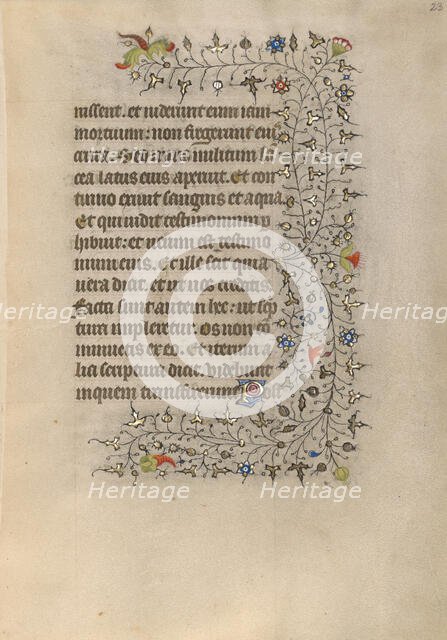 23
nissent. et viderunt eum iam
mortuum: non fregerunt eius
crura. Sed unus militum lan
cea latus eius aperuit. Et con
tinuo exivit sanguis et aqua
Et qui vidit testimonium p
hibuit: et verum est testimo
nium eius. Et ille scit quia
vera dicit: et et vos credatis.
Facta sunt autem hec: ut scp
tura impleretur. Os non
minuetis ex eo. Et iterum a
lia scriptura dicit. Videbunt
in quem transfixerunt.
Heritage Heritage
Heritage Heritage
Heritage Heritage